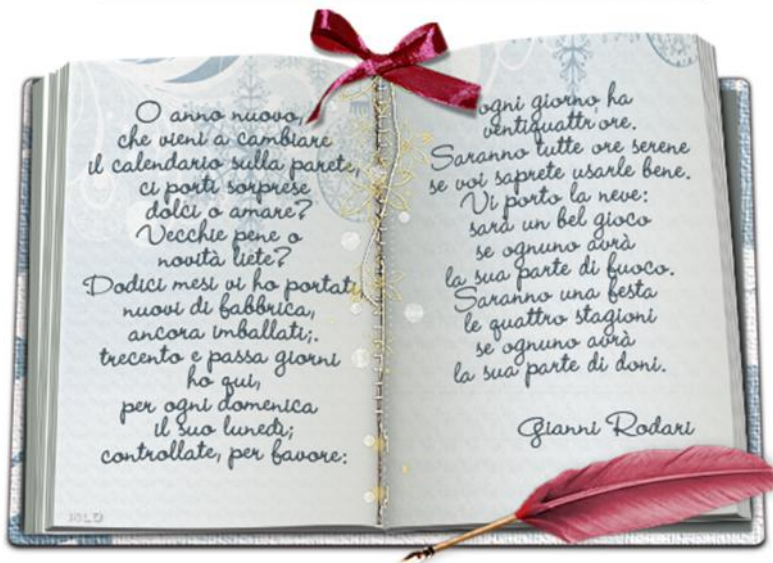 O anno nuovo,
che vieni a cambiare
il calendario sulla parete,
ci porti sorprese
dolci o amare?
Vecchie pene o
novità liete?
Dodici mesi vi ho portati
nuovi di fabbrica,
ancora imballati;.
trecento e passa giorni
ho qui,
per ogni domenica
il suo lunedì;
controllate, per favore:
ogni giorno ha
ventiquattr'ore.
Saranno tutte ore serene
se voi saprete usarle bene.
Vi porto la neve:
sarà un bel gioco
se ognuno avrà
la sua parte di fuoco.
Saranno una festa
le quattro stagioni
se ognuno avrà
la sua parte di doni.
Gianni Rodari